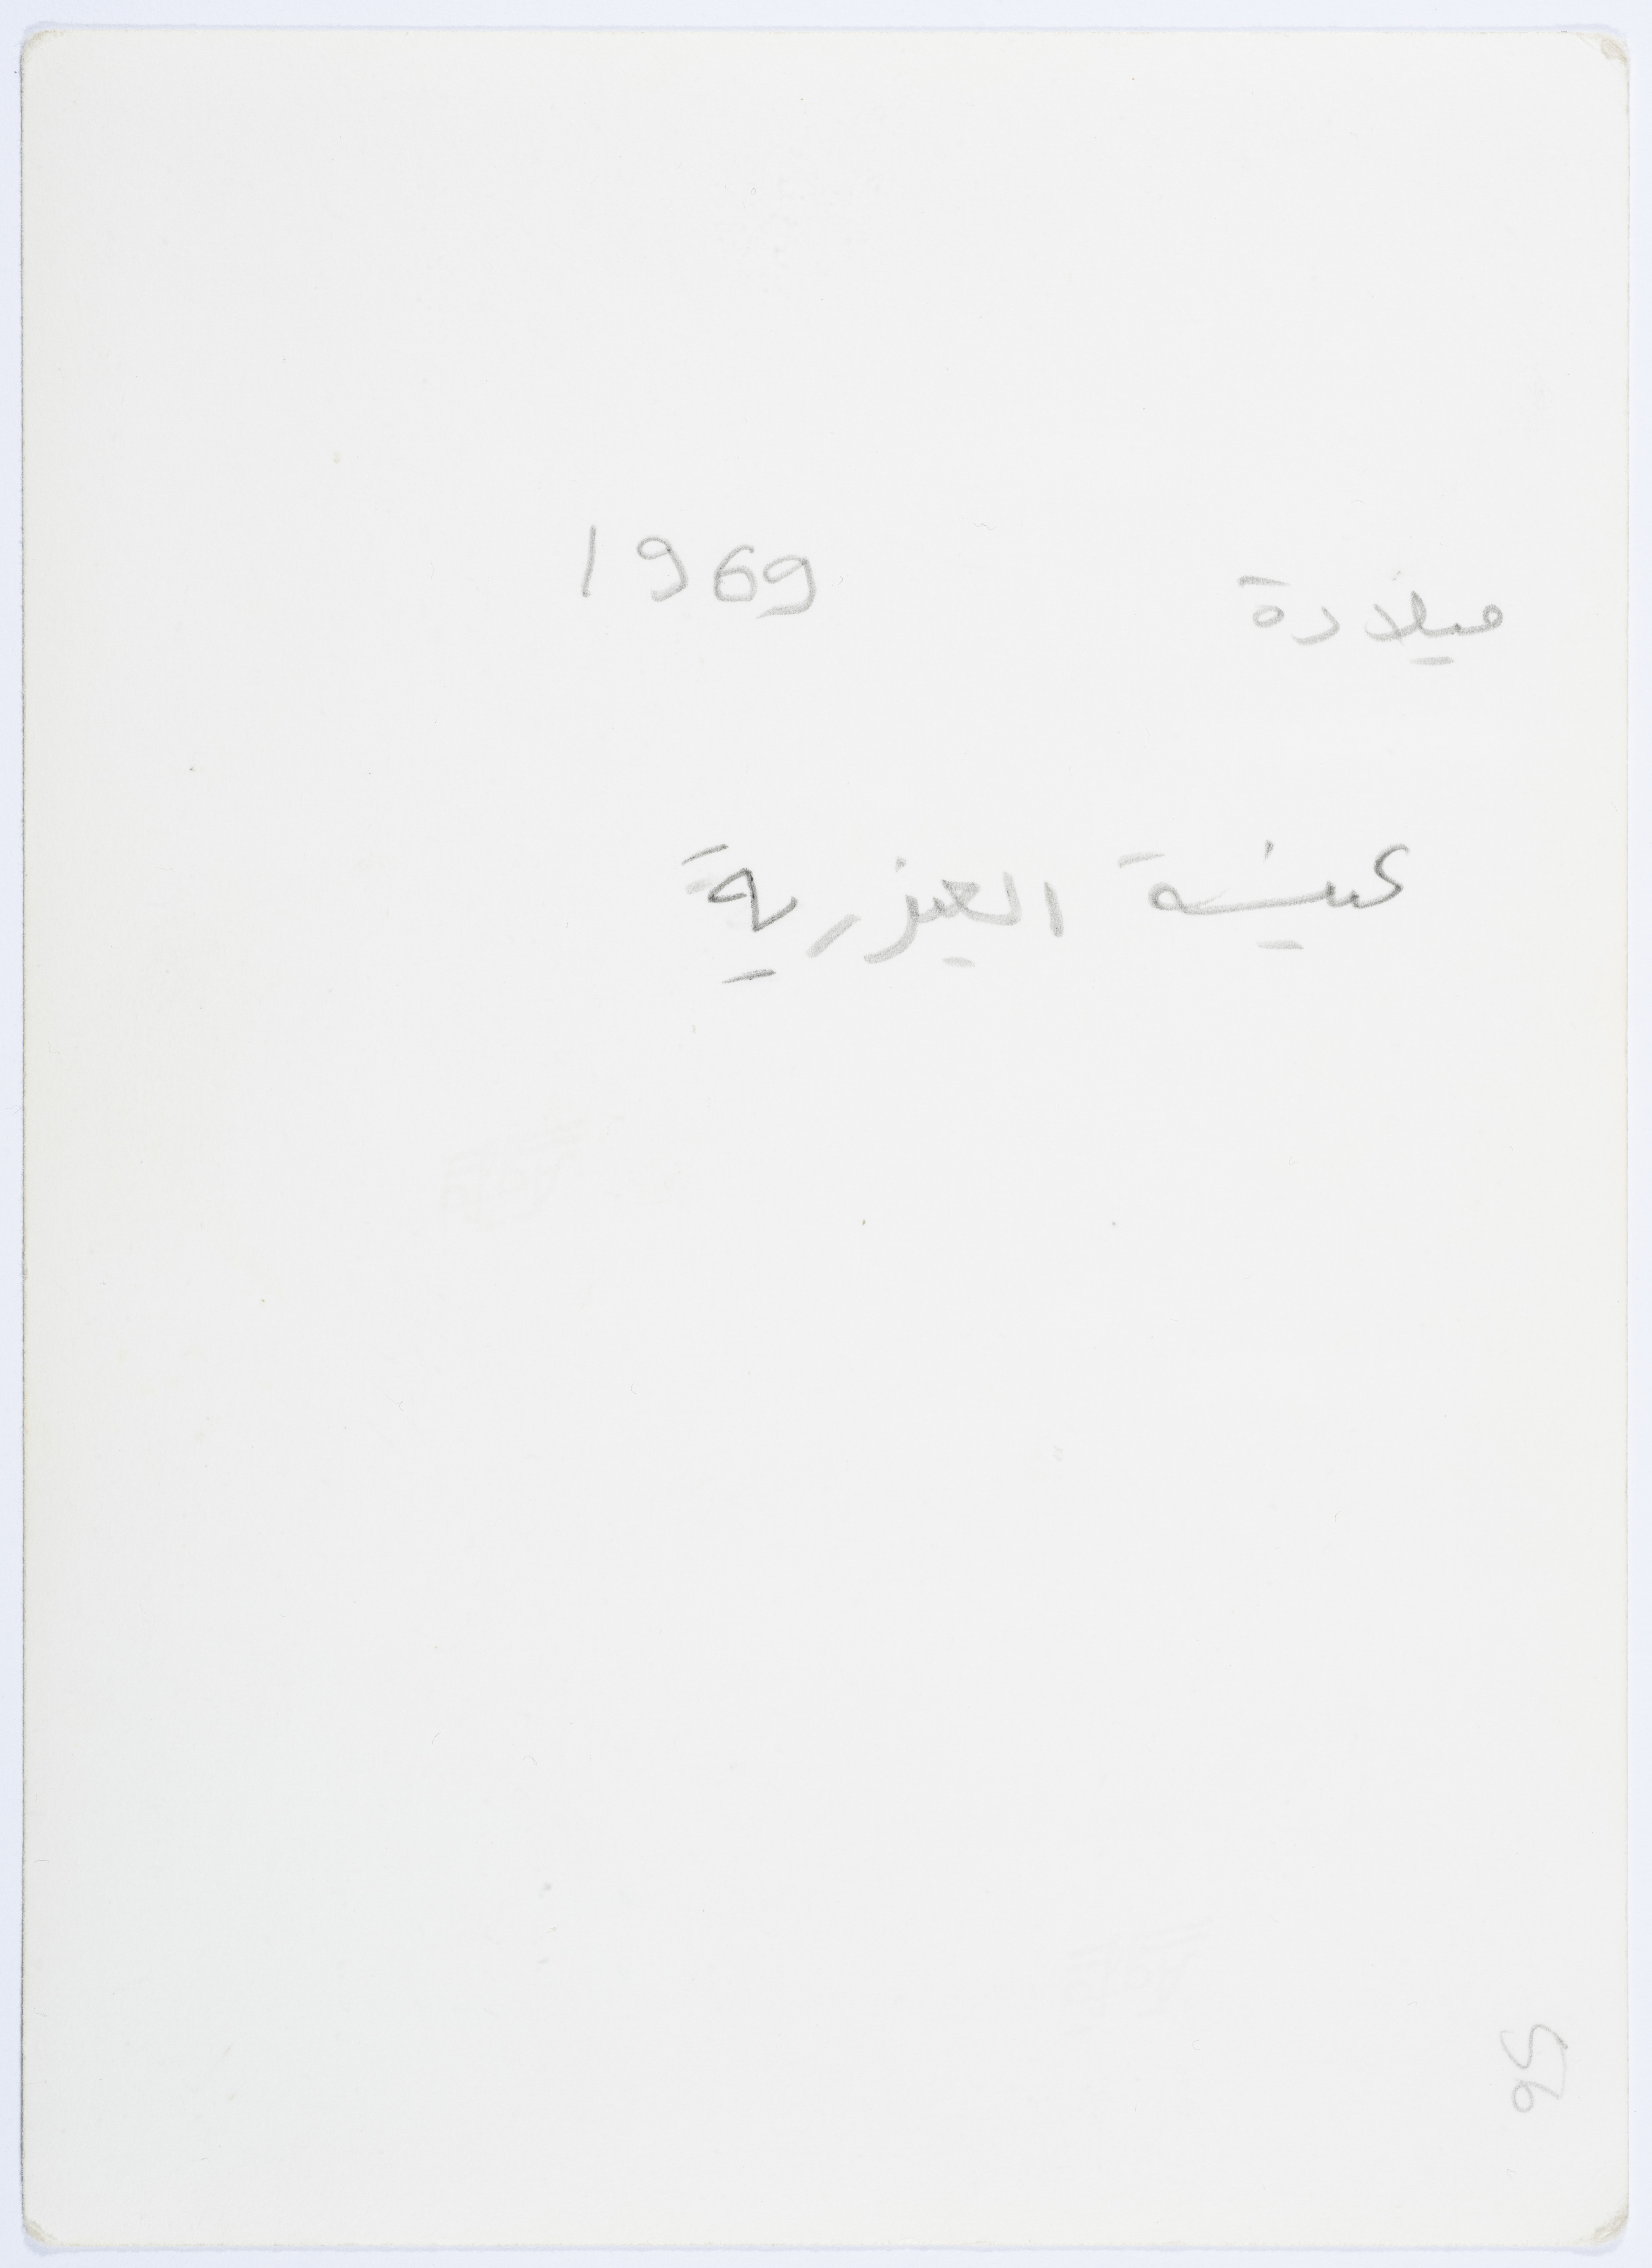 ميلادة 1969
كنيسة العيزرية
56